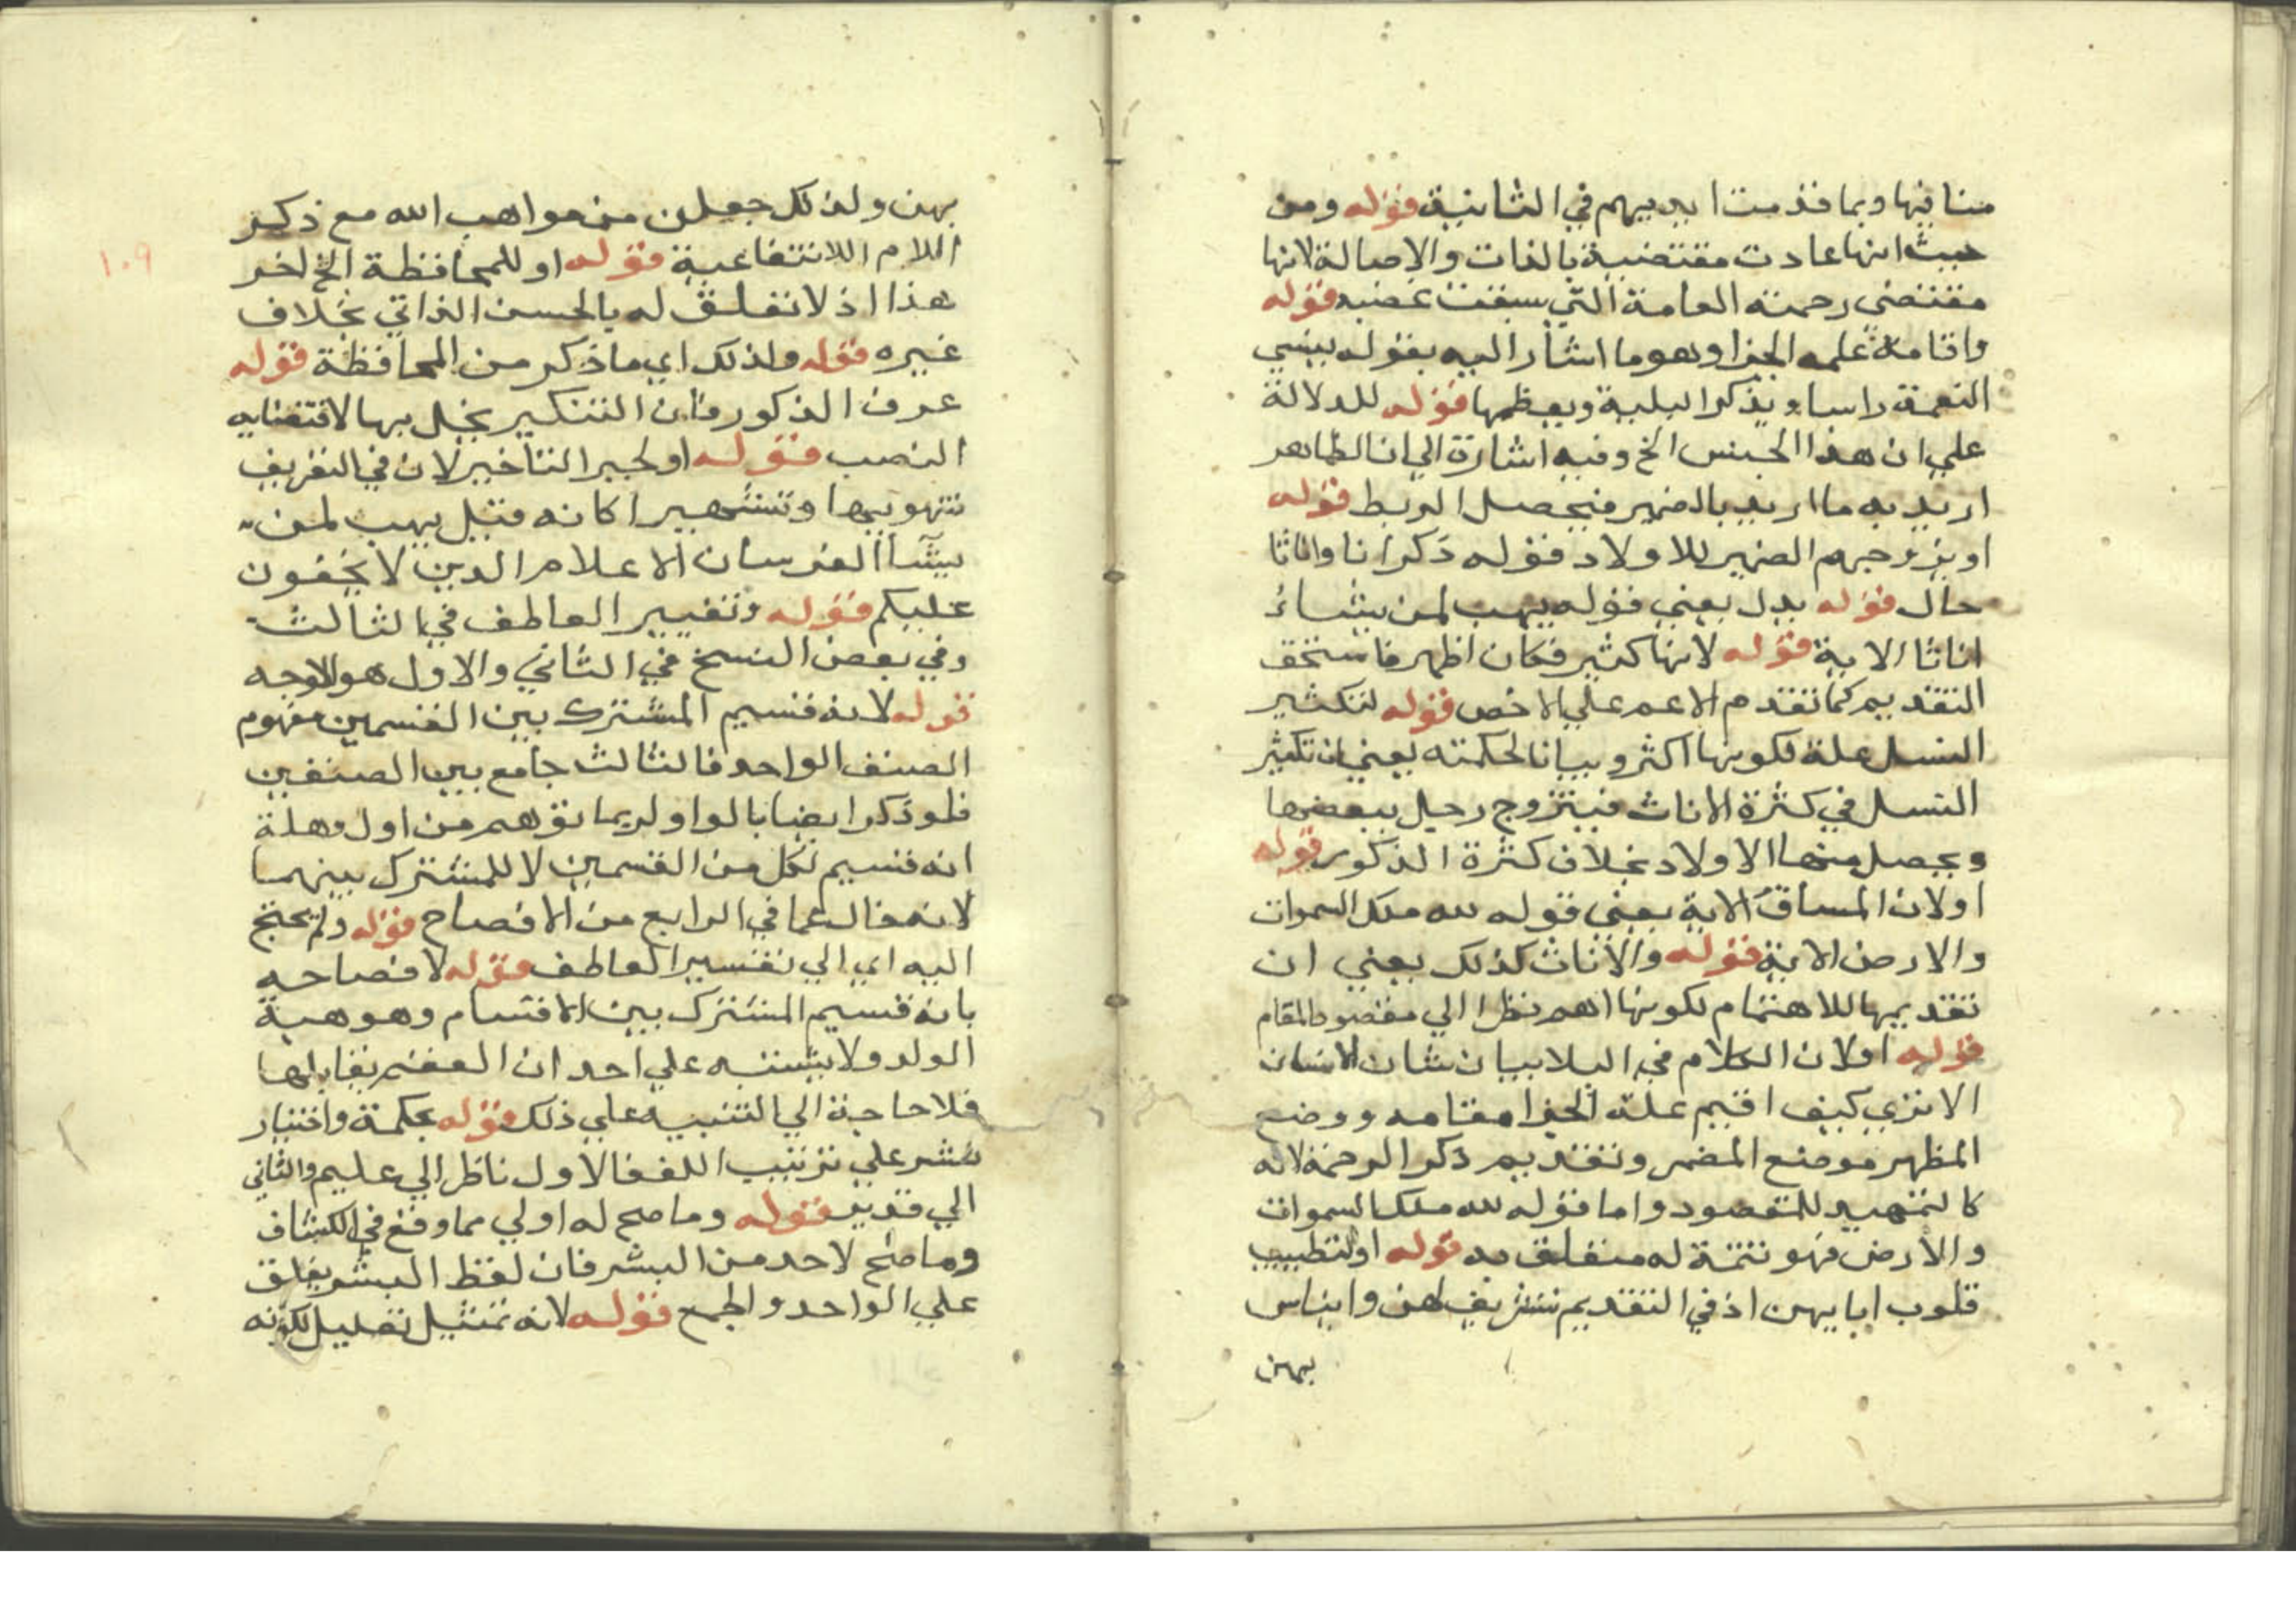 منافيها وبما قدمت ايديهم في الثانية قوله ومن
حيث انها عادت مقتضية بالذات والاصالة لانها
مقتضى رحمته العامة التي سبقت غضبه قوله
واقامة علمه الجزا وهو ما اشار اليه بقوله ينسي
النعمة راسا ويذكر البلية ويعظمها قوله للدلالة
علي ان هذا الجنس الخ وفيه اشارة الي ان الظاهر
اريد به ما اريد بالضمير فيحصل الربط قوله
او يزوجهم الضمير للاولاد فقوله ذكرانا واناثا
حال قوله بدل يعني قوله يهب لمن يشاء
اناثا الاية قوله لانها كثير فكان اظهر فاستحق
التقديم كما تقدم الاعم علي الاخص قوله لتكثير
النسل علة لكونها اكثر وبيانا لحكمته يعني ان تكثير
النسل في كثرة الاناث فيتزوج رجل ببعضها
ويحصل منها الاولاد بخلاف كثرة الذكور قوله
اولان المساق الاية يعني قوله لله ملك السموات
والارض الاية قوله والاناث كذلك يعني ان
تقديمها للاهتمام لكونها اهم نظرا الي مقصود المقام
قوله اولان الكلام في البلا بيان شان الانسان
الا تري كيف اقيم علة الجزا مقامه ووضع
المظهر موضع المضمر وتقديم ذكر الرحمة لانه
كالتمهيد للمقصود واما قوله لله ملك السموات
والارض فهو تتمة له متعلق به قوله اولتطييب
قلوب ابايهن اذ في التقديم تشريف لهن وايناس
بهن
١٠٩
بهن ولذلك جعلن من مواهب الله مع ذكر
اللام اللانتفاعية قوله او للمحافظة الخ اخر
هذا اذ لا تعلق له بالحسن الذاتي بخلاف
غيره قوله ولذلك اي ما ذكر من المحافظة قوله
عرف الذكور فان التنكير يخل بها لاقتضايه
النصب قوله او لجبر التاخير لان في التعريف
تنويها وتشهيرا كانه قيل يهب لمن
يشآ الفرسان الاعلام الذين لا يخفون
عليكم قوله وتغيير العاطف في الثالث
وفي بعض النسخ في الثاني والاول هو الاوجه
قوله لانه قسيم المشترك بين القسمين مفهوم
الصنف الواحد فالثالث جامع بين الصنفين
فلو ذكر ايضا بالواو لربما توهم من اول وهلة
انه قسيم لكل من القسمين لا للمشترك بينهما
لانه خال عما في الرابع من الافصاح قوله ولم يحتج
اليه اي الي تغيير العاطف قوله لافصاحه
بانه قسيم المشترك بين الاقسام وهو هبة
الولد ولا يشتبه علي احد ان العقم يقابلها
فلا حاجة الي التنبيه علي ذلك قوله بحكمة واختيار
نشر علي ترتيب اللف فالاول ناظر الي عليم والثاني
الي قدير قوله وما صح له اولي مما وقع في الكشاف
وما صح لاحد من البشر فان لفظ البشر يطلق
علي الواحد والجمع قوله لانه تمثيل تعليل لكونه